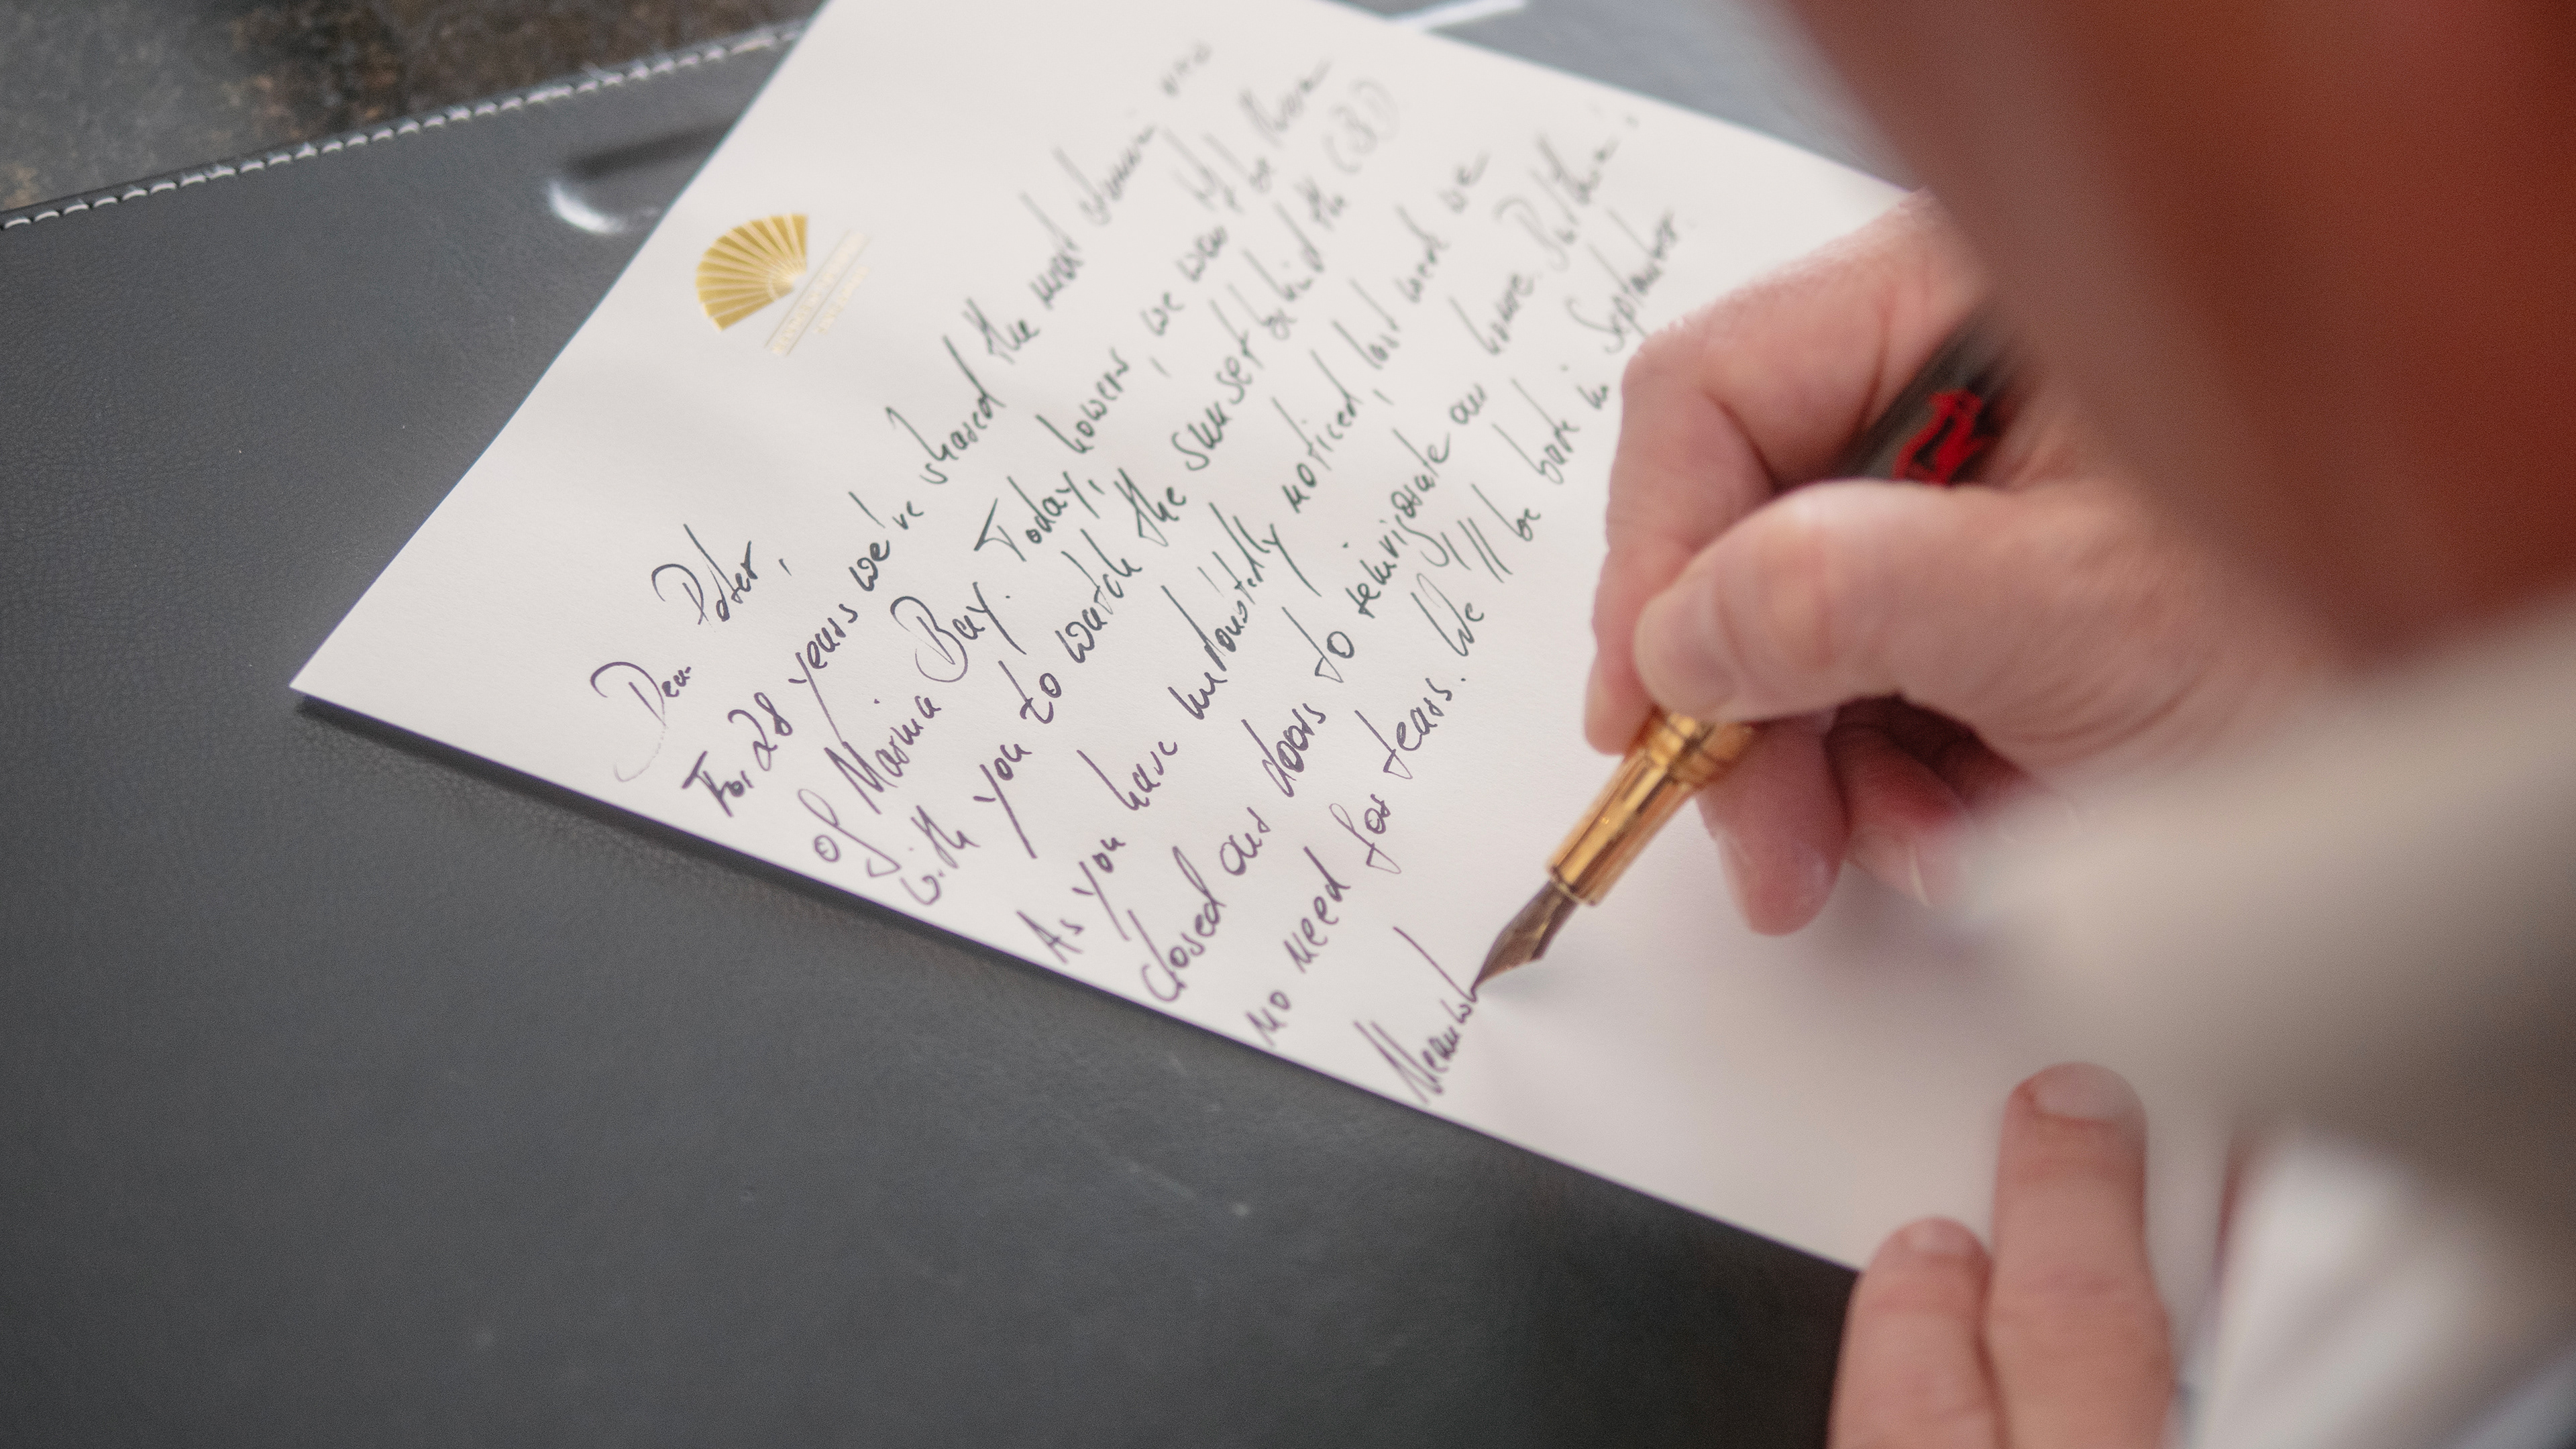 Dear Peter,
For 28 years we've shared the most stunning view
of Marina Bay. Today, however, we won't be there
with you to watch the sunset behind the
As you have undoubtedly noticed, last week we
closed our doors to reinvigorate our home. But there's
no need for tears. We'll be back in September.
Meanwh